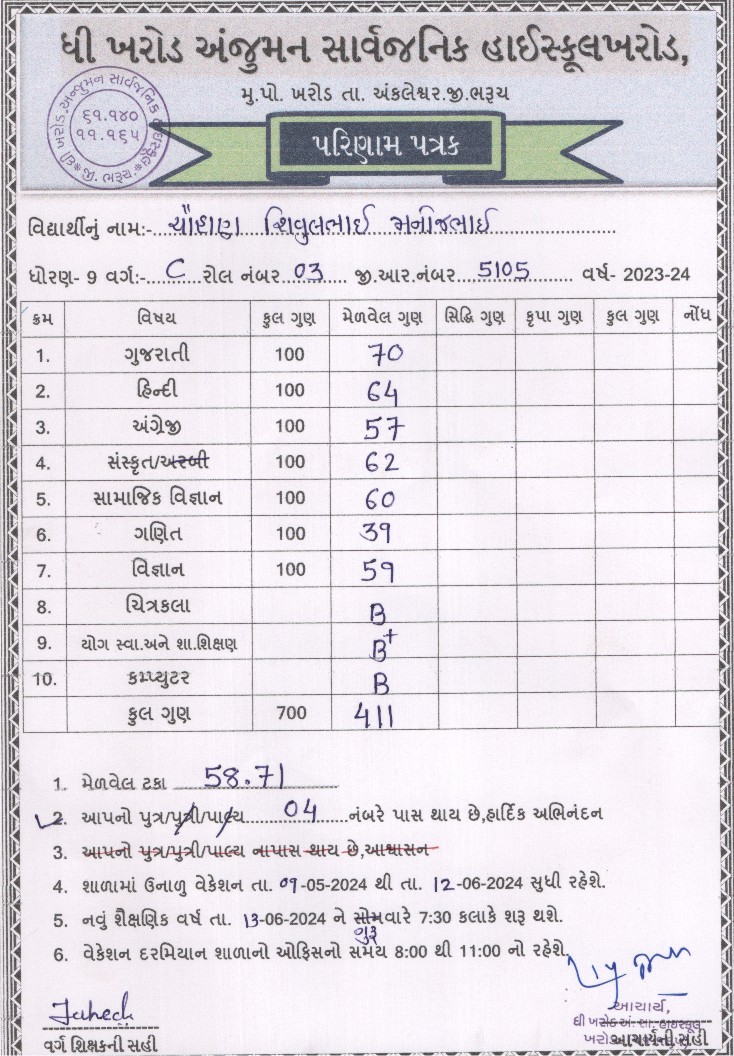 ધી ખરોડ અંજુમન સાર્વજનિક હાઈસ્કૂલખરોડ,
મુ.પો. ખરોડ તા. અંકલેશ્વર.જી.ભરૂચ
ધી ખરોડ.અન્જુમન સાર્વજનિક હાઈસ્કૂલ * જી. ભરૂચ. *
૬૧.૧૪૦
૧૧.૧૬૫
પરિણામ પત્રક
વિદ્યાર્થીનું નામ:-...ચૌહાણ શિવુલભાઈ મનીજભાઈ
ધોરણ- 9 વર્ગ:-...C...રોલ નંબર..03.... જી.આર.નંબર....5105........... વર્ષ- 2023-24
ક્રમ વિષય કુલ ગુણ મેળવેલ ગુણ સિદ્ધિ ગુણ કૃપા ગુણ કુલ ગુણ નોંધ
1. ગુજરાતી 100 70
2. હિન્દી 100 64
3. અંગ્રેજી 100 57
4. સંસ્કૃત/અરબી 100 62
5. સામાજિક વિજ્ઞાન 100 60
6. ગણિત 100 39
7. વિજ્ઞાન 100 59
8. ચિત્રકલા B
9. યોગ સ્વા.અને શા.શિક્ષણ B+
10. કમ્પ્યુટર B
કુલ ગુણ 700 411
1. મેળવેલ ટકા 58.71
2. આપનો પુત્ર/પુત્રી/પાલ્ય.........04......નંબરે પાસ થાય છે,હાર્દિક અભિનંદન
3. આપનો પુત્ર/પુત્રી/પાલ્ય નાપાસ થાય છે,આશ્વાસન
4. શાળામાં ઉનાળુ વેકેશન તા. 09-05-2024 થી તા. 12-06-2024 સુધી રહેશે.
5. નવું શૈક્ષણિક વર્ષ તા. 13-06-2024 ને સોમવારે 7:30 કલાકે શરૂ થશે.
ગુરૂ
6. વેકેશન દરમિયાન શાળાનો ઓફિસનો સમય 8:00 થી 11:00 નો રહેશે.
આચાર્ય,
ધી ખરોડ અં. સા. હાઇસ્કૂલ
ખરોડ
વર્ગ શિક્ષકની સહી આચાર્યની સહી